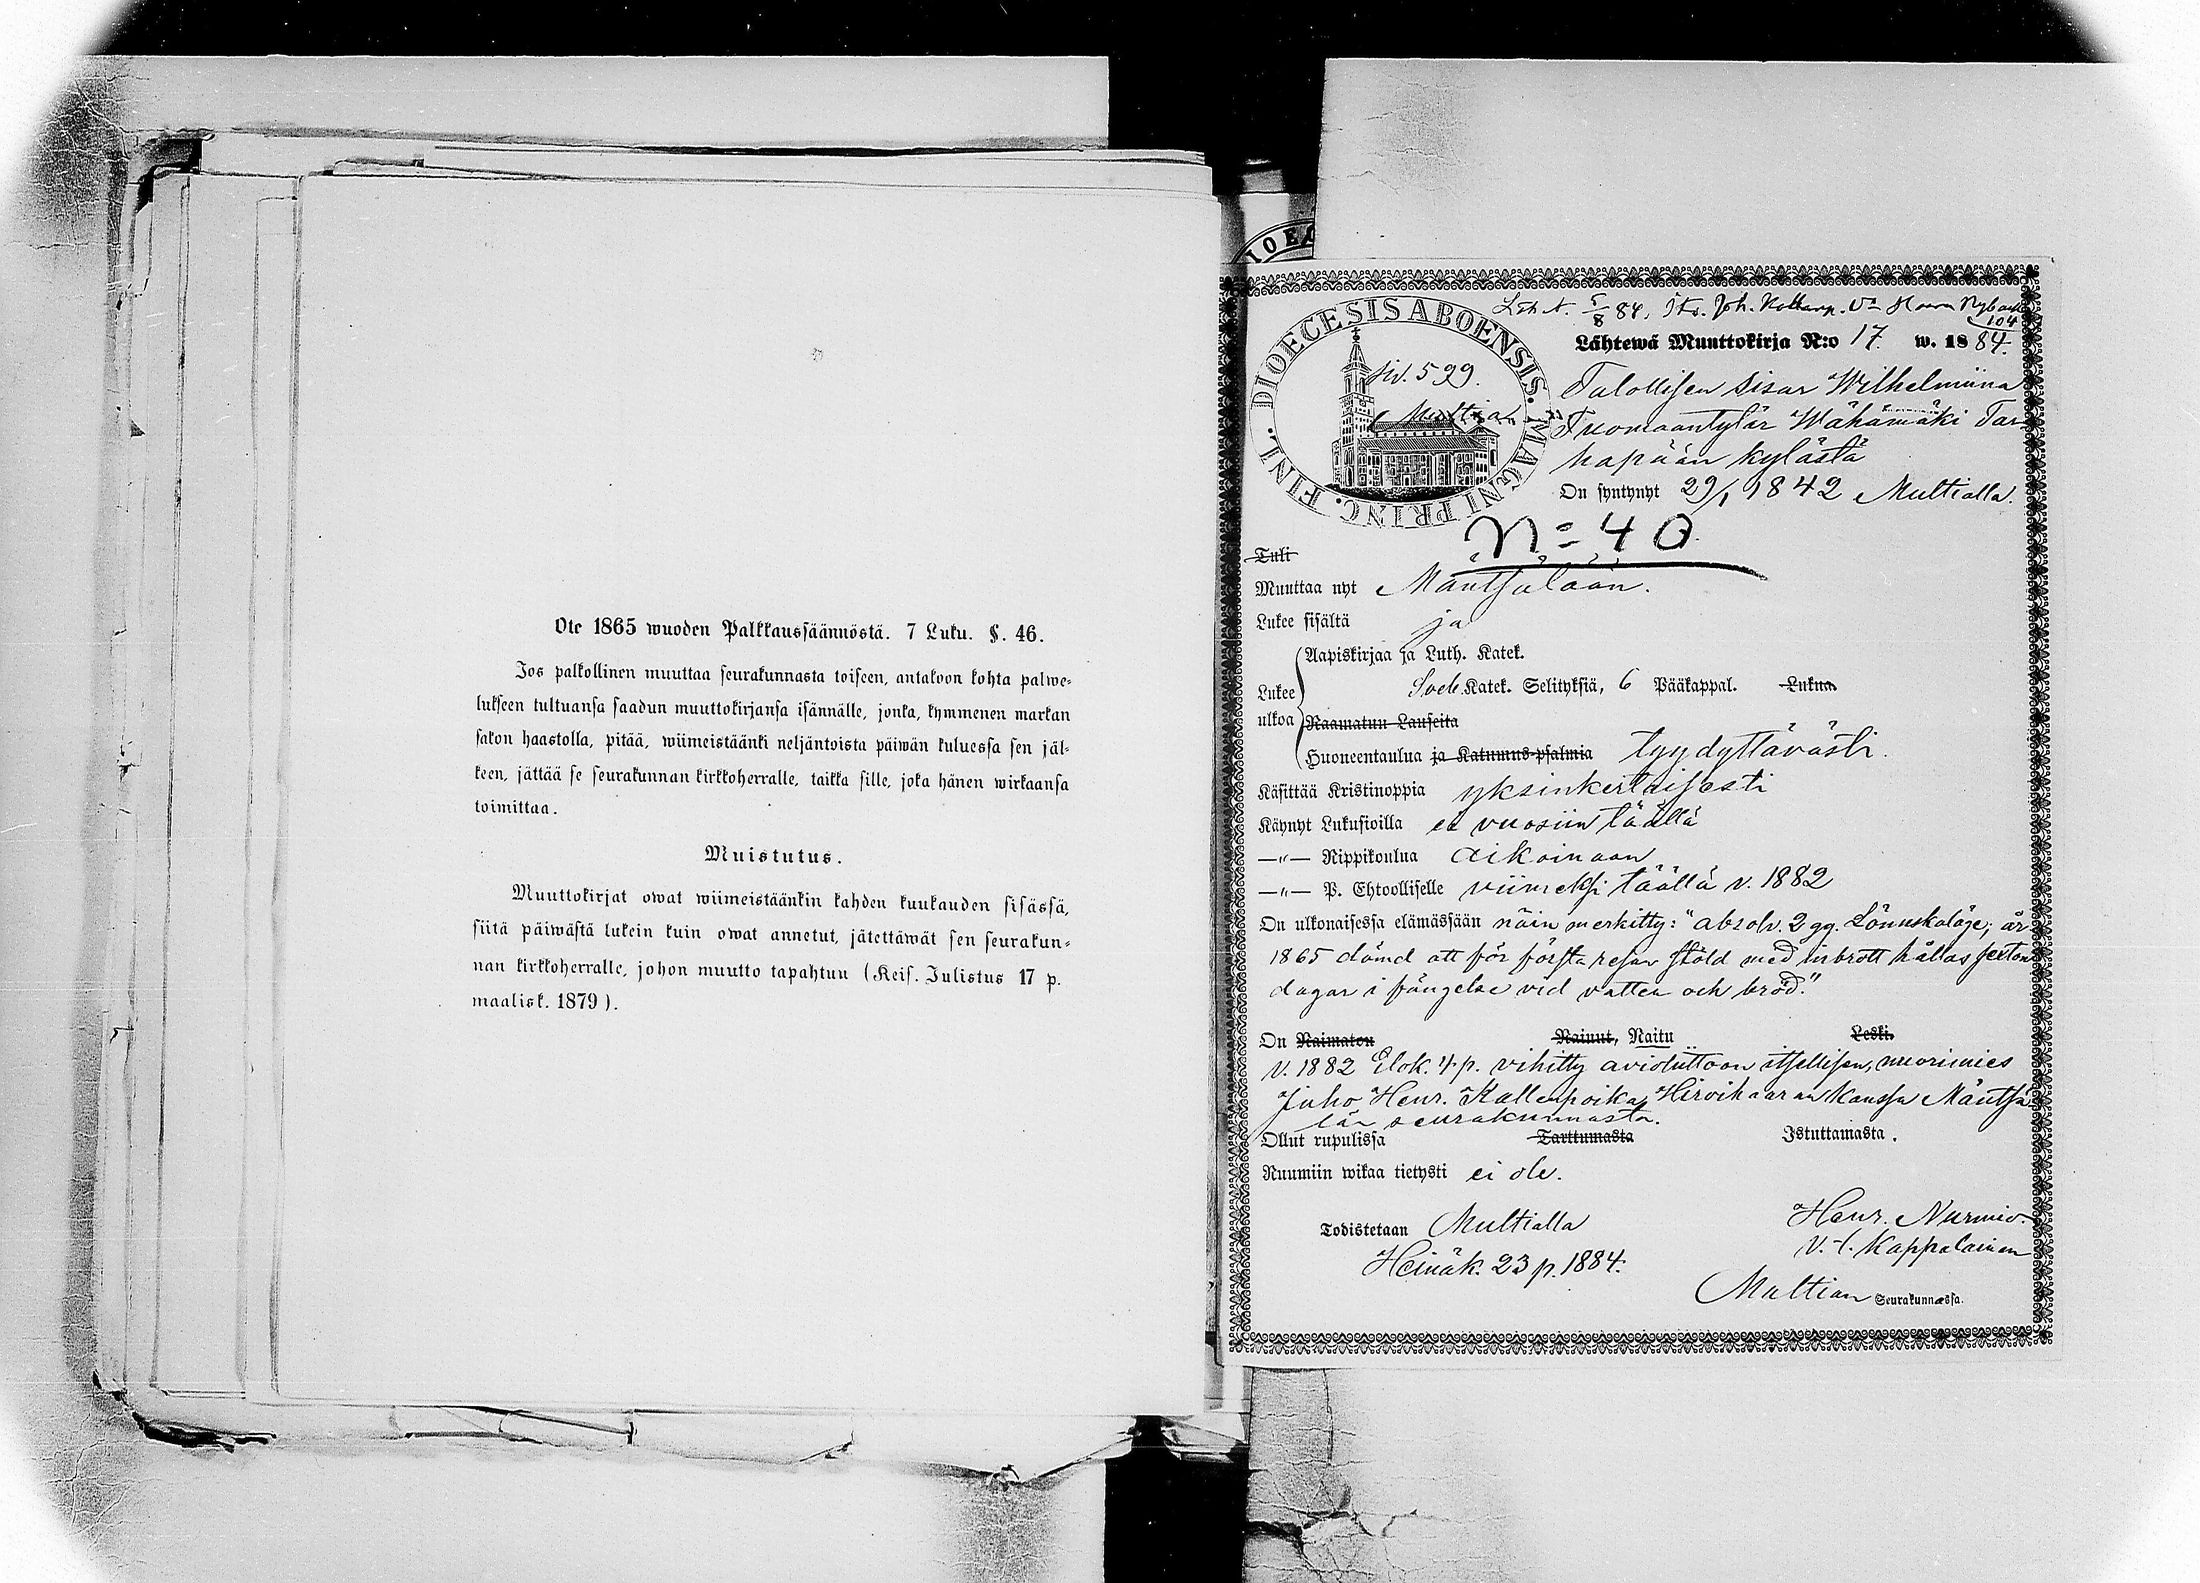 Ote 1865 wuoden Palkkaussäännöstä. 7 Luku. §. 46.
Jos palkollinen muuttaa seurakunnasta toiseen, antakoon kohta palwe-
lukseen tultuansa saadun muuttokirjansa isännälle, jonka, kymmenen markan
sakon haastolla, pitää, wiimeistäänki neljäntoista päiwän kuluessa sen jäl-
keen, jättää se seurakunnan kirkkoherralle, taikka sille, joka hänen wirkaansa
toimittaa.
Muistutus.
Muuttokirjat owat wiimeistäänkin kahden kuukauden sisässä,
siitä päiwästä lukein kuin owat annetut, jätettäwät sen seurakun-
nan kirkkoherralle, johon muutto tapahtuu (Keis. Julistus 17 p.
maalisk. 1879).
IOEC
5/8 84, Joh.
104
DIOECESIS ABOENSIS. MAGNI PRINC. FINL.
siv. 599.
Multian
Lähtewä Muuttokirja N:o 17. w. 1884.
Talollisen sisar Wilhelmiina
Tuomaantytär Wähämäki Tar
hapään kylästä
On syntynyt 29/1 1842 Multialla.
N=40
Tuli
Muuttaa nyt Mäntsälään.
Lukee sisältä ja
Aapiskirjaa ja Luth. Katek.
Lukee
ulkoa
Katek. Selityksiä, 6 Pääkappal. Lukua.
Raamatun Lauseita
Huoneentaulua ja Katumus-psalmia tyydyttävästi.
Käsittää Kristinoppia yksinkertaisesti
Käynyt Lukusioilla ei vuosiin täällä
—"— Rippikoulua aikoinaan
—"— P. Ehtoolliselle viimeksi täällä v. 1882
On ulkonaisessa elämässään näin merkitty: "absolv. 2 gg. Lönnskaläge; år
1865 dömd att för första resan stöld med inbrott hållas sexton
dagar i fängelse vid vatten och bröd."
On Naimaton Nainut, Naitu Leski.
v. 1882 Elok. 4 p. vihitty avioliittoon itsellisen, nuorimies
Juho Henr. Kallenpoika Hirvihaaran kanssa Mäntsä
län seurakunnasta.
Ollut rupulissa Tarttumasta Istuttamasta.
Ruumiin wikaa tietysti ei ole.
Todistetaan Multialla
Heinäk. 23 p. 1884.
Henr. Nurmio.
v. t. Kappalainen
Multian Seurakunnassa.